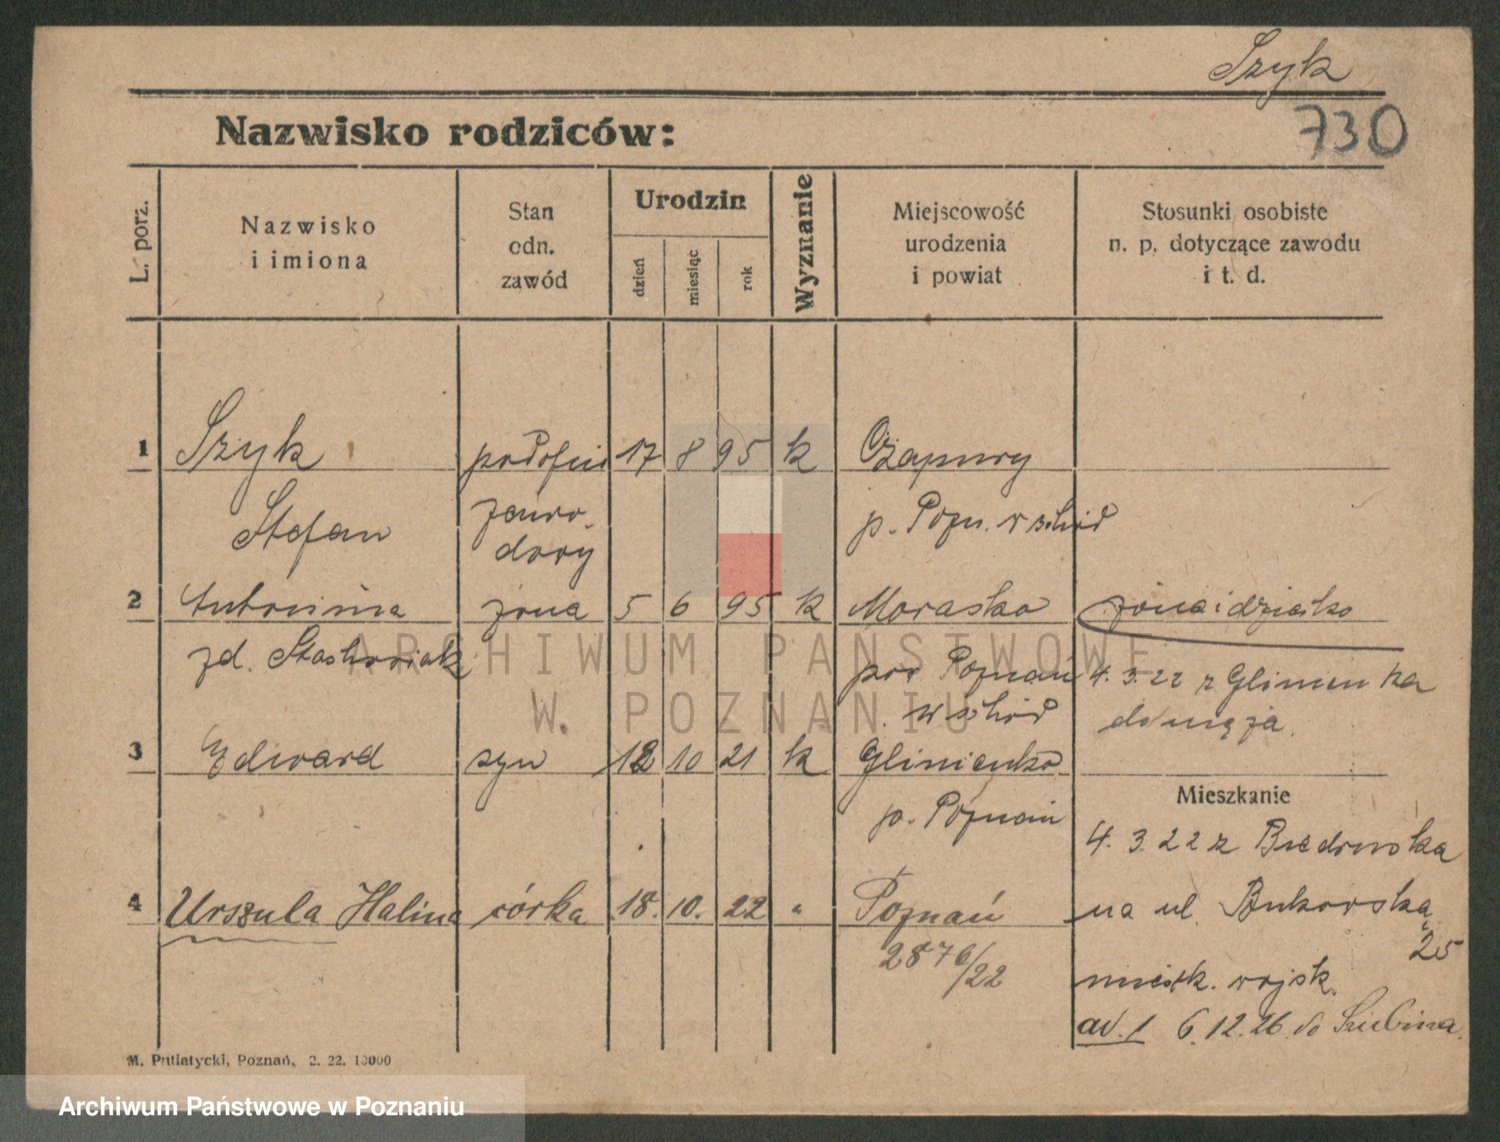 Szyk
730
Nazwisko rodziców:
L. porz.
Nazwisko
i imiona
Stan
odn.
zawód
Urodzin
dzień
miesiąc
rok
Wyznanie
Miejscowość
urodzenia
i powiat
Stosunki osobiste
n. p. dotyczące zawodu
i t. d.
1 Szyk 17 8 95 k Czapury
Stefan zawo- p. Pozn. wschód
dowy
2 Antonina żona 5 6 95 k Morasko żona i dziecko
zd. Stachowiak pow Poznań 4.3.22 z Glinienka
wschód do męża.
3 Edward syn 12 10 21 k Glinienko
p. Poznań
Mieszkanie
4. 3. 22 z Biedruska
4 Urszula Halina córka 18. 10. 22 " Poznań na ul. Bukowską
2876/22
25
mieszk. wojsk.
ad. 1 6.12.26 do Szubina.
M. Putiatycki, Poznań, 2. 22. 10000
ARCHIWUM PAŃSTWOWE
W POZNANIU
Archiwum Państwowe w Poznaniu